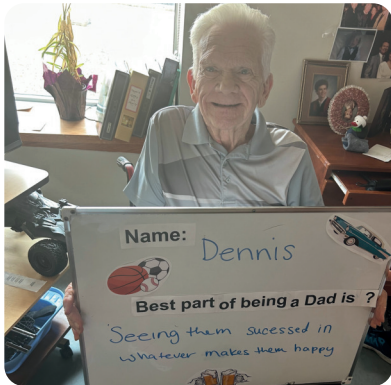 Name: Dennis
Best part of being a Dad is ?
Seeing them sucessed in
whatever makes them happy